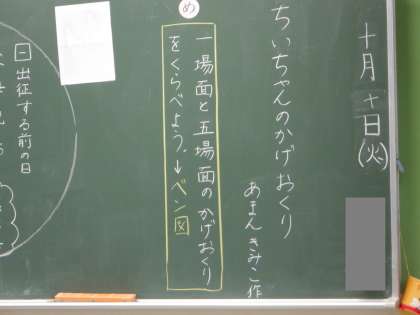 十月十日(火)
ちいちゃんのかげおくり
あまんきみこ作
め
一場面と五場面のかげおくり
をくらべよう。→ペン図
一 出征する前の日